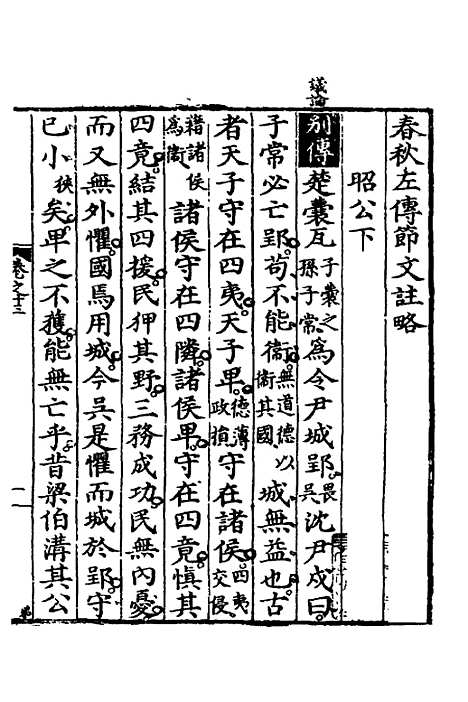 春秋左傳節文註略
昭公下
議論
別傳楚囊瓦子囊之孫子常爲令尹城郢畏吳沈尹戍曰
子常必亡郢苟不能衛無道德以衛其國城無益也古
者天子守在四夷天子卑德薄政損守在諸侯四夷交侵
藉諸侯爲衛諸侯守在四隣諸侯卑守在四竟愼其
四竟結其四援民狎其野三務成功民無內憂
而又無外懼國焉用城今吳是懼而城於郢守
巳小狹矣卑之不獲能無亡乎昔梁伯溝其公
卷之十三
一